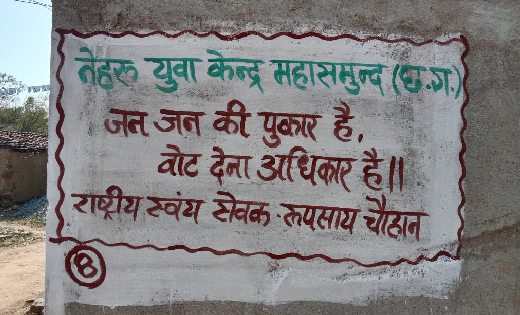 नेहरू युवा केन्द्र महासमुन्द (छ.ग.)
जन जन की पुकार है,
वोट देना अधिकार है॥
राष्ट्रीय स्वंय सेवक - रुपसाय चौहान
8